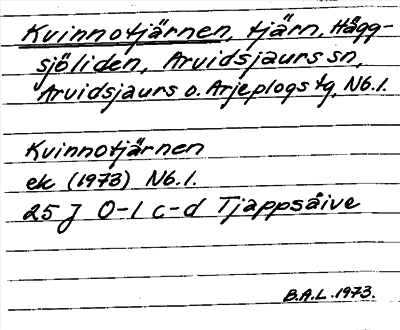 Kvinnotjärnen, tjärn, Hägg-
sjöliden, Arvidsjaurs sn,
Arvidsjaurs o. Arjeplogs tg, Nb.l.
Kvinnotjärnen
ek (1973) Nb.l.
25 J 0-1 c-d Tjappsåive
B.A.L. 1973.